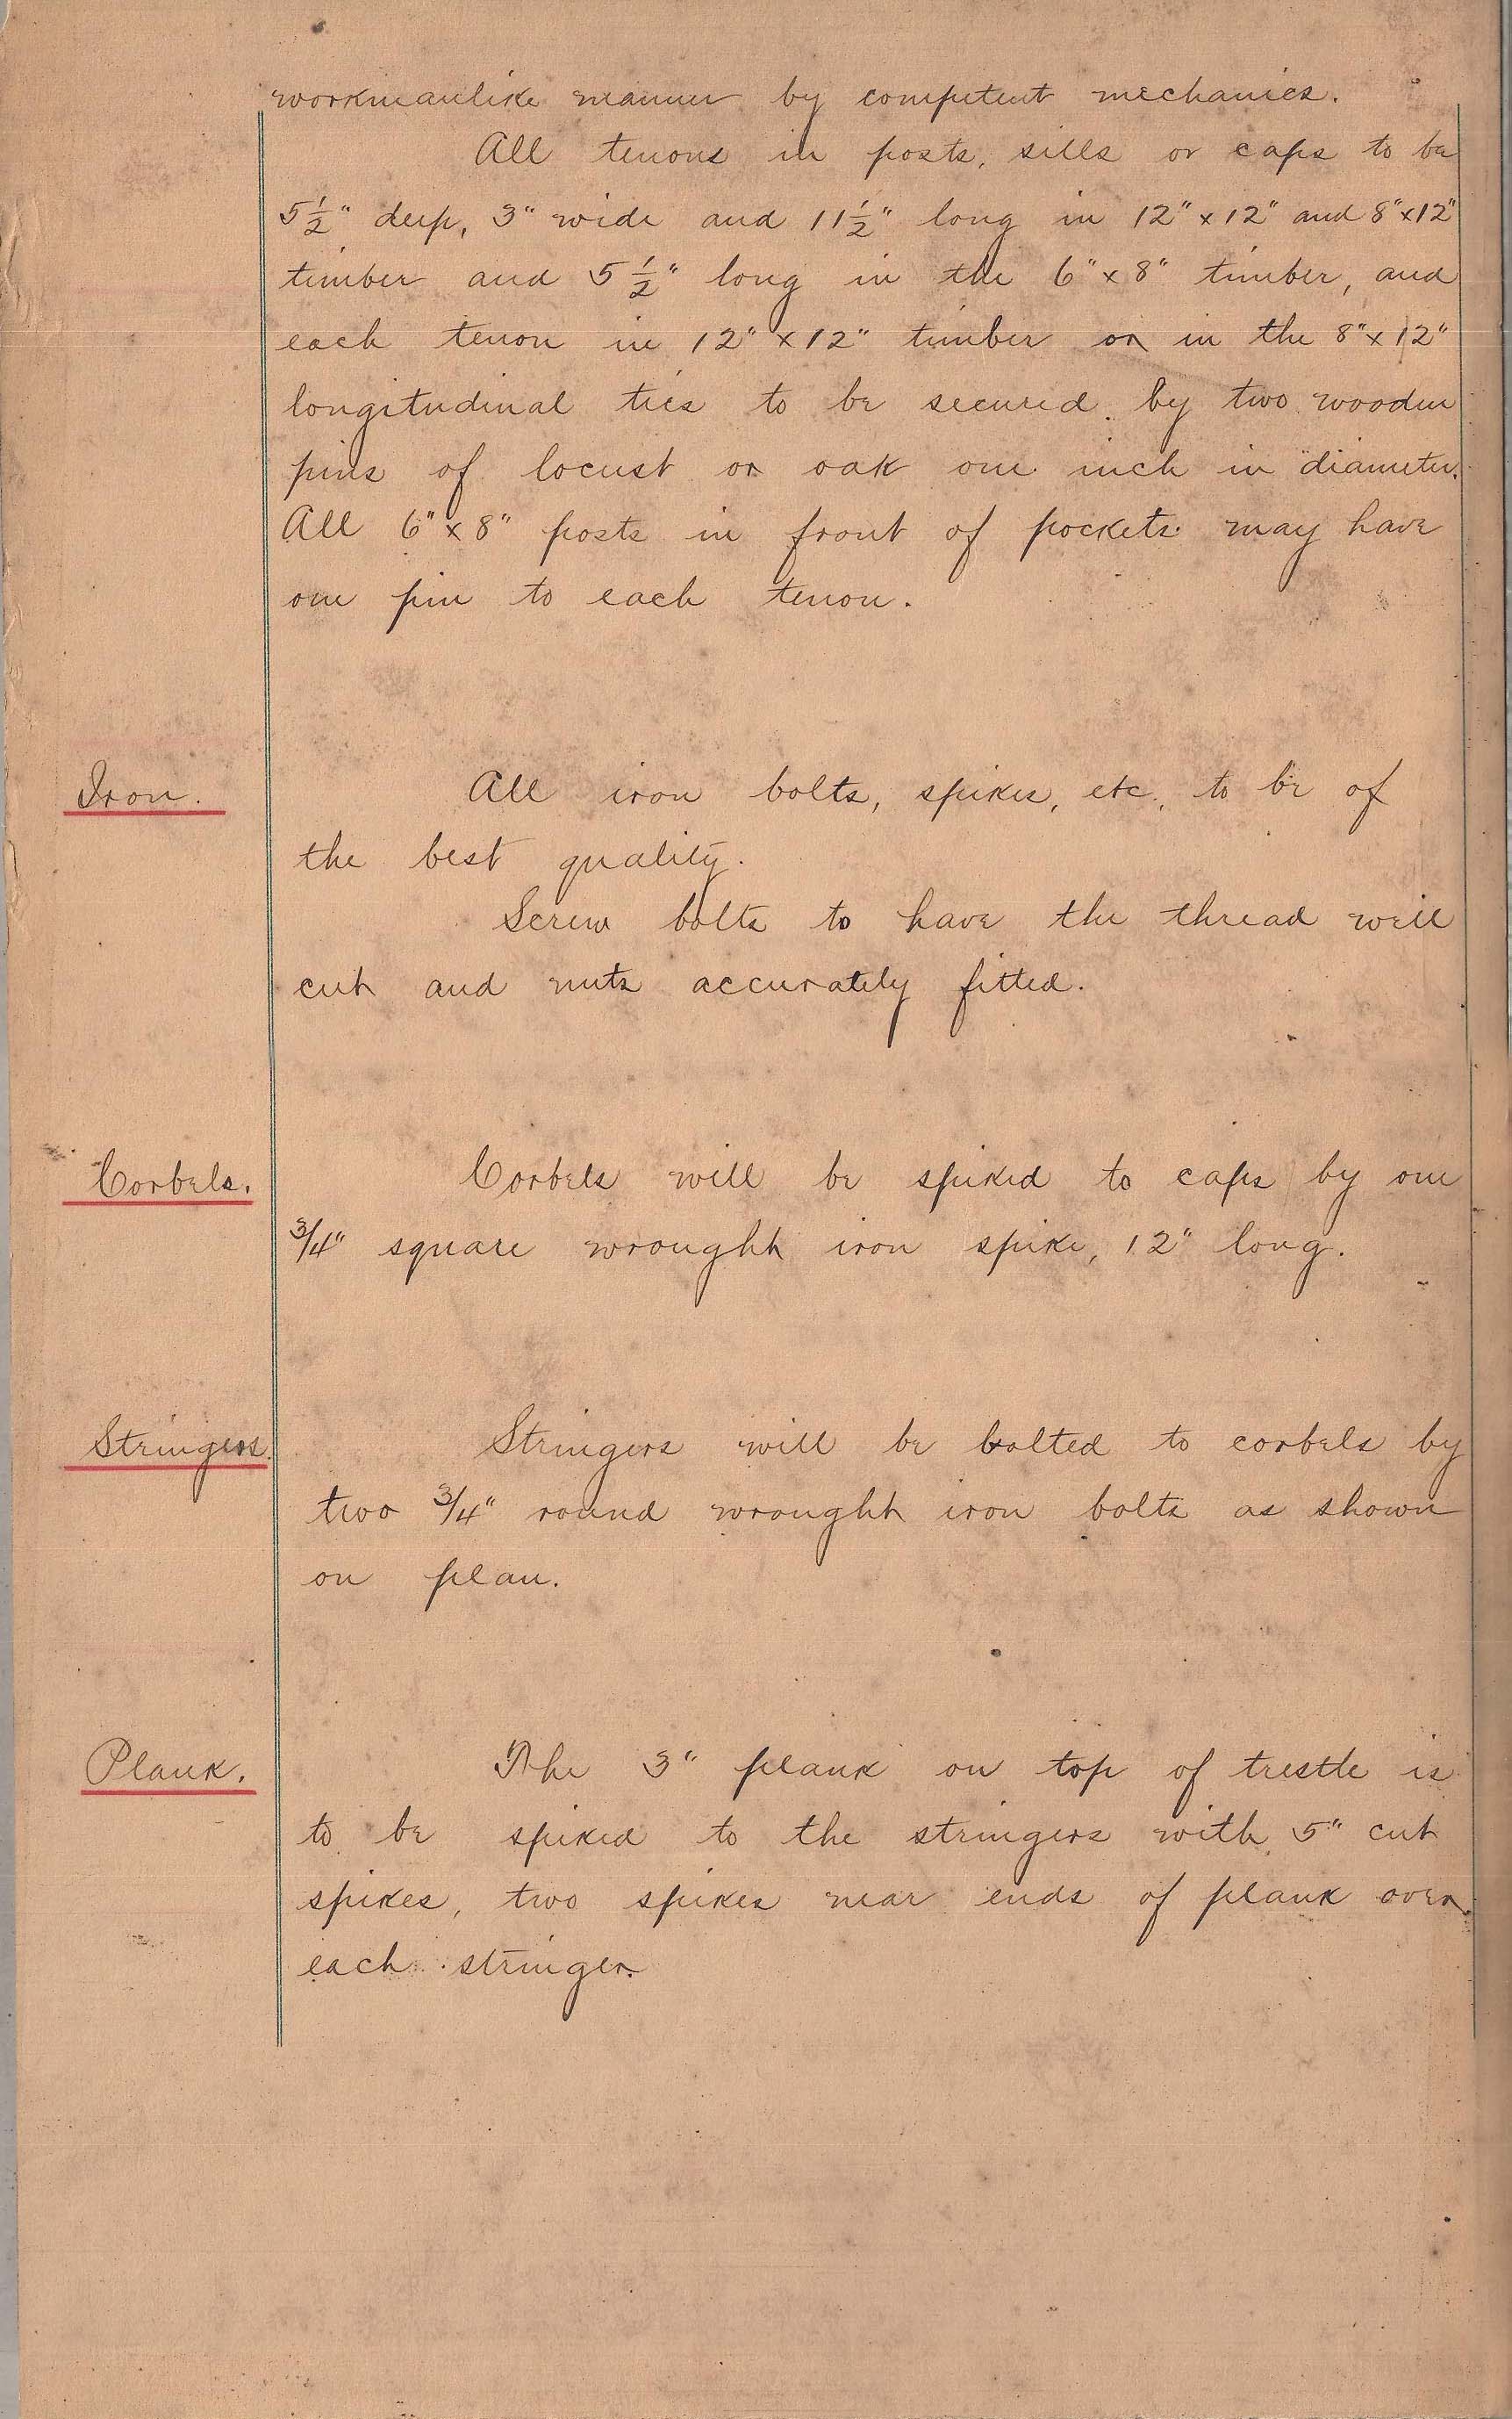 workmanlike manner by competent mechanics.
All tenons in posts, sills or caps to be
5 1/2" deep, 3" wide and 11 1/2" long in 12" x 12" and 8" x 12"
timber and 5 1/2" long in the 6" x 8" timber, and
each tenon in 12" x 12" timber or in the 8" x 12"
longitudinal ties to be secured by two wooden
pins of locust or oak one inch in diameter.
All 6" x 8" posts in front of pockets may have
one pin to each tenon.
Iron.
All iron bolts, spikes, etc., to be of
the best quality.
Screw bolts to have the thread well
cut and nuts accurately fitted.
Corbels.
Corbels will be spiked to caps by one
3/4" square wrought iron spike, 12" long.
Stringers.
Stringers will be bolted to corbels by
two 3/4" round wrought iron bolts as shown
on plan.
Plank.
The 3" plank on top of trestle is
to be spiked to the stringers with 5" cut
spikes, two spikes near ends of plank over
each stringer.